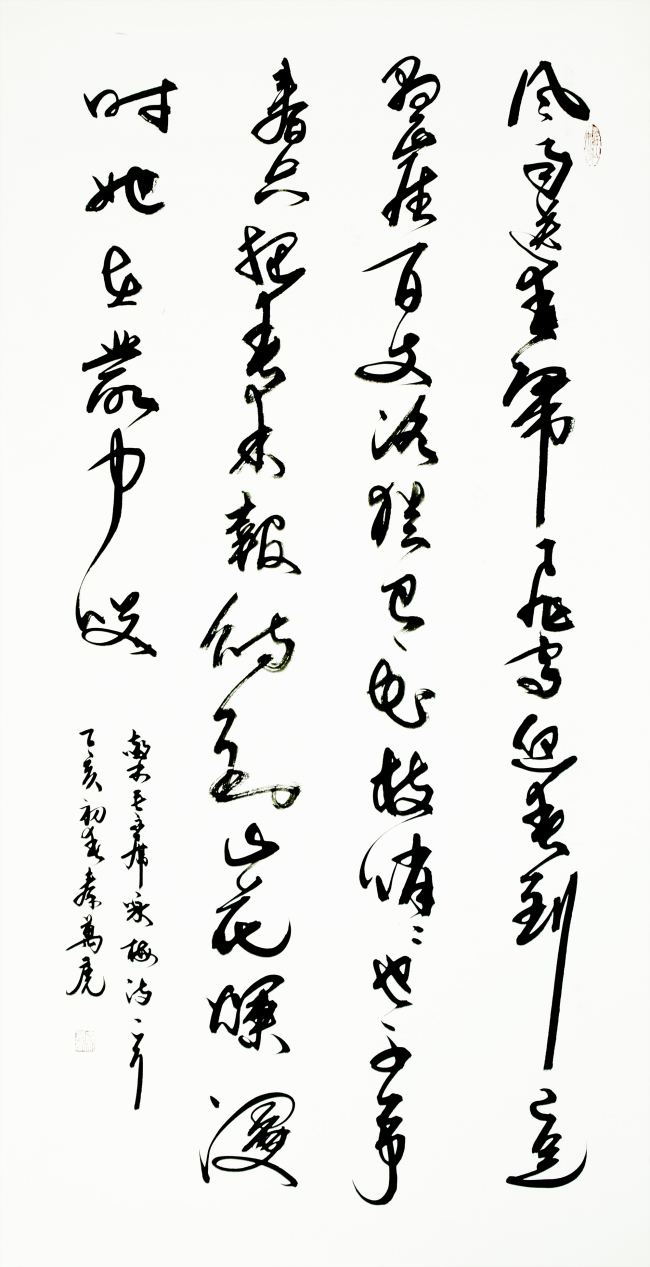 风雨送春歸飛雪迎春到已是
懸崖百丈冰猶有花枝俏俏也不爭
春只把春來報待到山花爛漫
时她在叢中笑
毛主席咏梅詩一首
丁亥初春秦萬虎